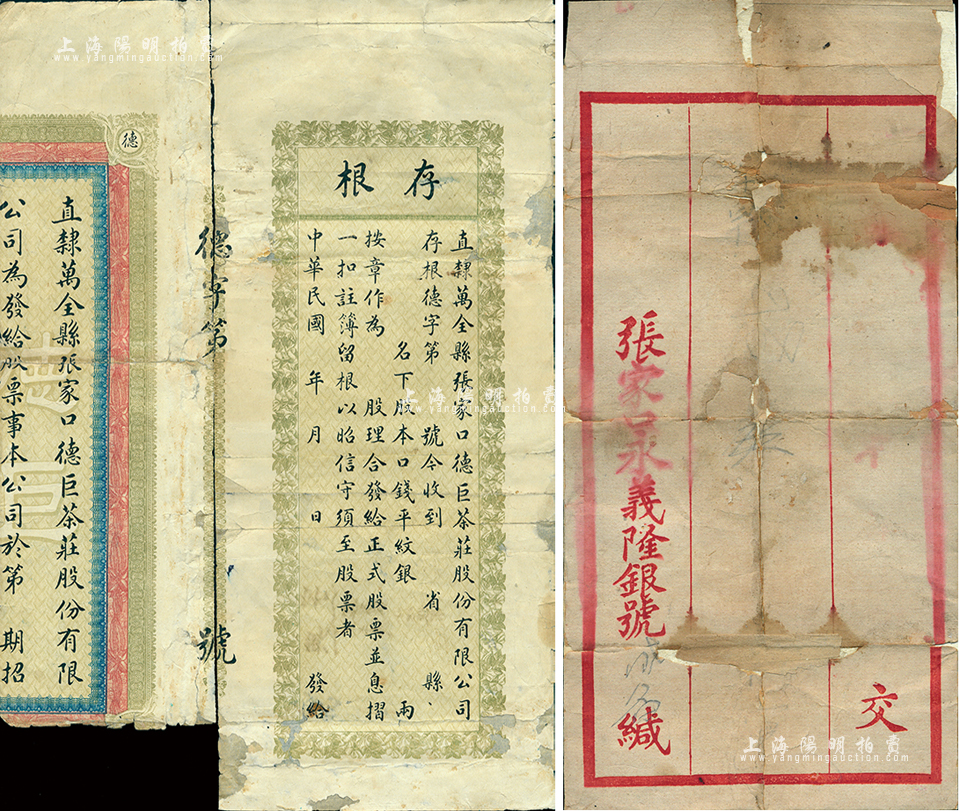 上海陽明拍賣
www.yangmingauction.com
德
直隸萬全縣張家口德巨茶莊股份有限
公司為發給股票事本公司於第 期招
德字第 號
存根
直隸萬全縣張家口德巨茶莊股份有限公司
存根德字第 號今收到 省 縣
名下股本口錢平紋銀 兩
按章作為 股理合發給正式股票並息摺
一扣註簿留根以昭信守須至股票者
中華民國 年 月 日 發給
上海陽明拍賣
www.yangmingauction.com
交
張家口永義隆銀號 緘
上海陽明拍賣
www.yangmingauction.com